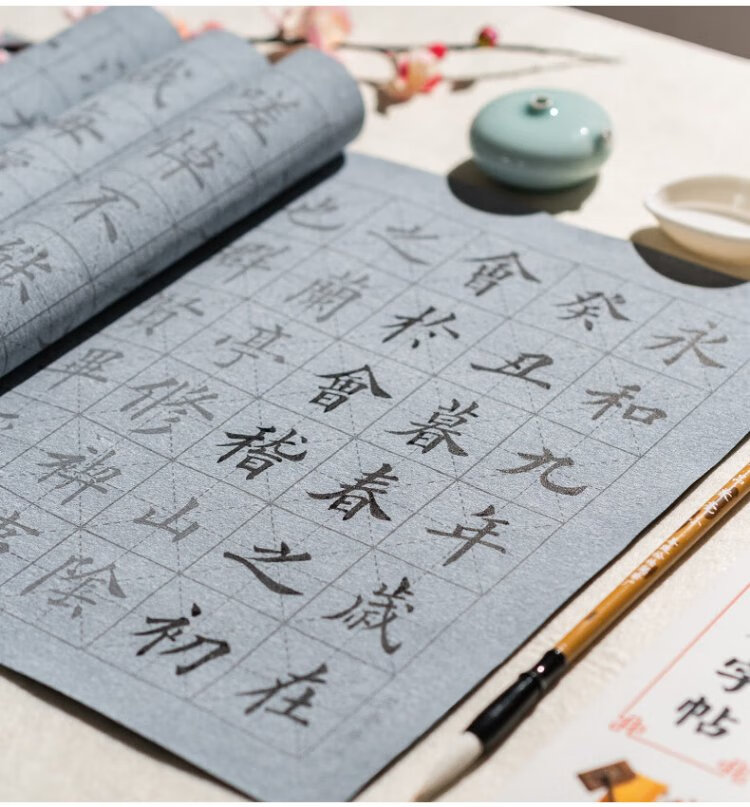 永和九年歲在
癸丑暮春之初
會於會稽山陰
之蘭亭修
也群賢畢
嗟悼不能
字帖